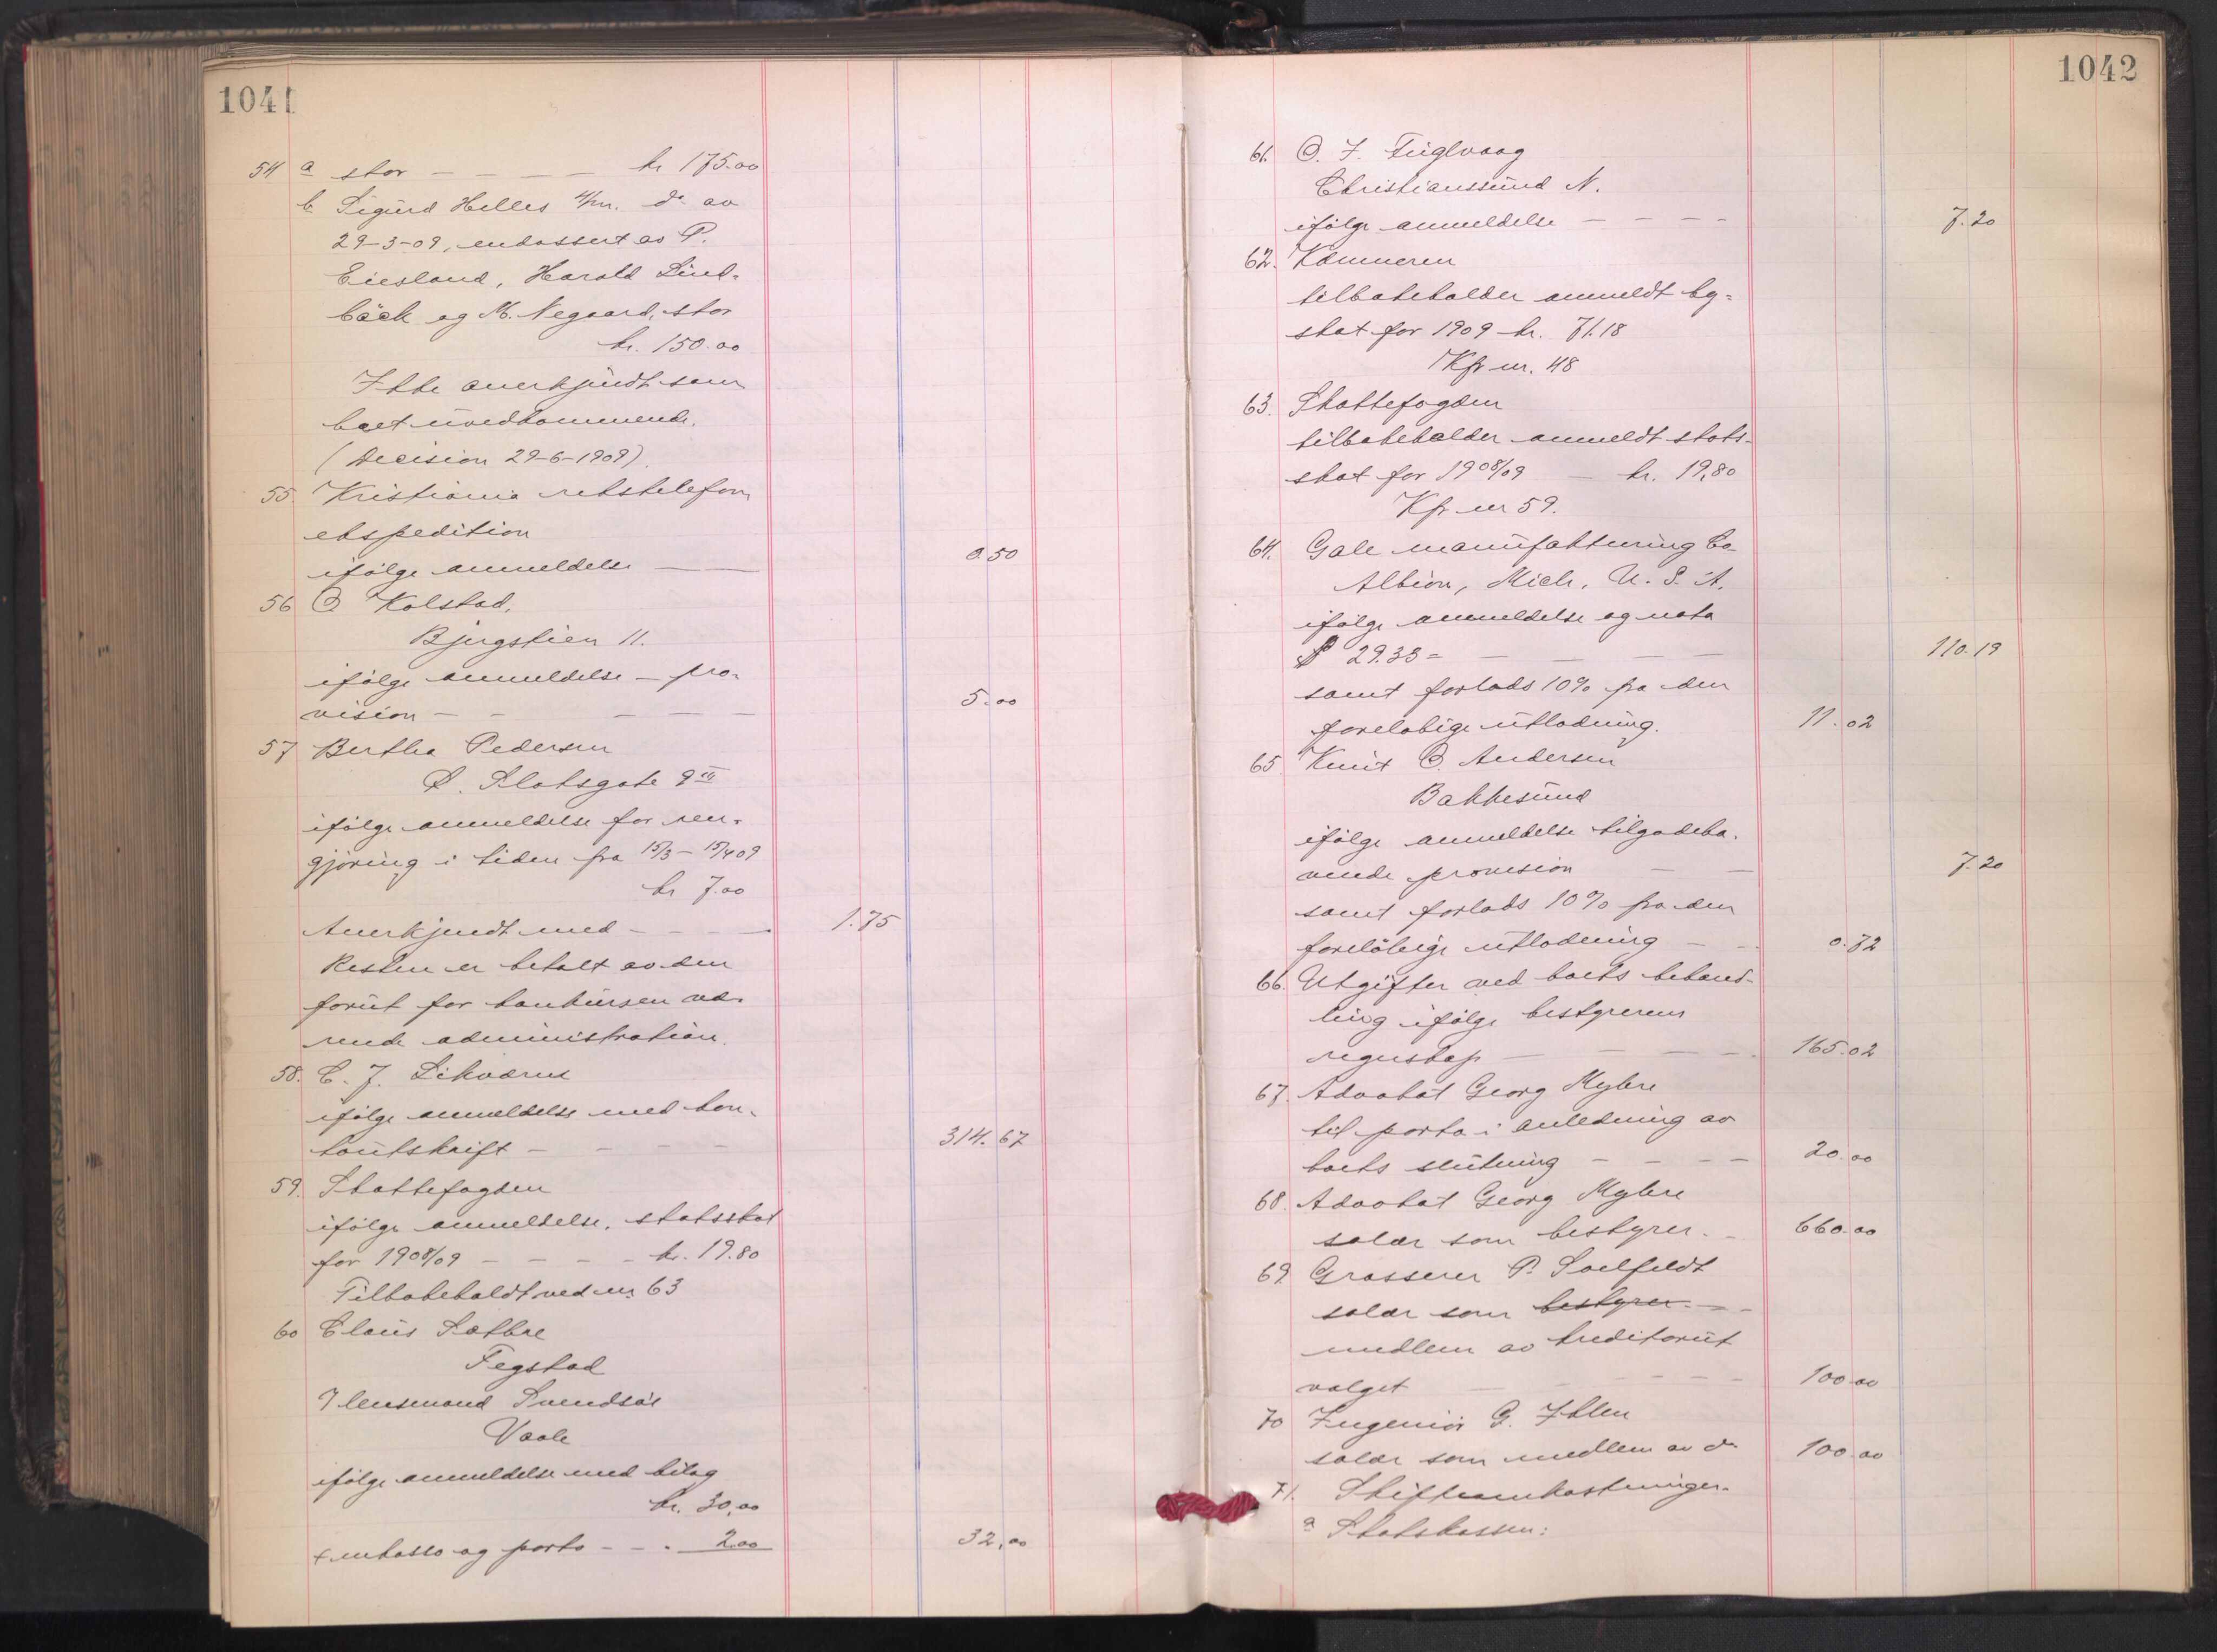 1041
54 a stor - - - - kr 175.00
b Sigurd Helles 4/m. do av
29-3-09, endossert av P.
Eiesland, Harald Lind-
bäck og M. Negaard, stor
kr. 150.00
Ikke anerkjendt som
boet uvedkommende.
(Decision 29-6-1909).
55. Kristiania rikstelefon
ekspedition
ifölge anmeldelse - - 0.50
56 O Kolstad,
Bjergstien 11.
ifölge anmeldelse - pro-
vision - - - - - 5.00
57 Bertha Pedersen
Ö. Slotsgate 9 III
ifölge anmeldelse for ren-
gjöring i tiden fra 15/3 - 15/4 09
kr 7.00
Anerkjendt med - - - - 1.75
Resten er betalt av den
forut for konkursen væ-
rende administration.
58. C. J. Likværn
ifölge anmeldelse med kon-
toutskrift - - - - 314.67
59. Skattefogden
ifölge anmeldelse, statsskat
for 1908/09 - - - - kr. 19.80
Tilbakekaldt ved nr 63
60 Claus Sætbæ
Fegstad
Lensmand Svendsöi
Vaale
ifölge anmeldelse med bilag
kr. 30,00
+ inkasso og porto - - - 2.00 32,00
1042
61. O. F. Fuglvaag
Christianssund N.
ifölge anmeldelse - - - - 7.20
62. Kæmneren
tilbakekalder anmeldt by-
skat for 1909 kr. 71.18
Kfr nr. 48
63. Skattefogden
tilbakekalder anmeldt stats-
skat for 1908/09 - kr. 19,80
Kfr nr 59.
64. Gale manufakturing Co
Albion, Mich. U. S. A.
ifölge anmeldelse og nota
$ 29.33 = - - - - 110.19
samt forlods 10% fra den
forelöbige utlodning. 11.02
65. Knut O. Andersen
Bakkesund
ifölge anmeldelse tilgodeha-
vende provision - - 7.20
samt forlods 10% fra den
forelöbige utlodning - - 0.72
66. Utgifter ved boets behand-
ling ifölge bestyrerens
regnskap - - - - 165.02
67. Advokat Georg Myhre
til porto i anledning av
boets slutning - - - - 20.00
68. Advokat Georg Myhre
salær som bestyrer. - 660.00
69. Grosserer P. Soelfeldt
salær som bestyrer - -
medlem av kreditorut
valget - - - - - 100.00
70 Ingeniör G. Ihlen
salær som medlem av do 100.00
71. Skifteomkostninger.
a Statskassen: